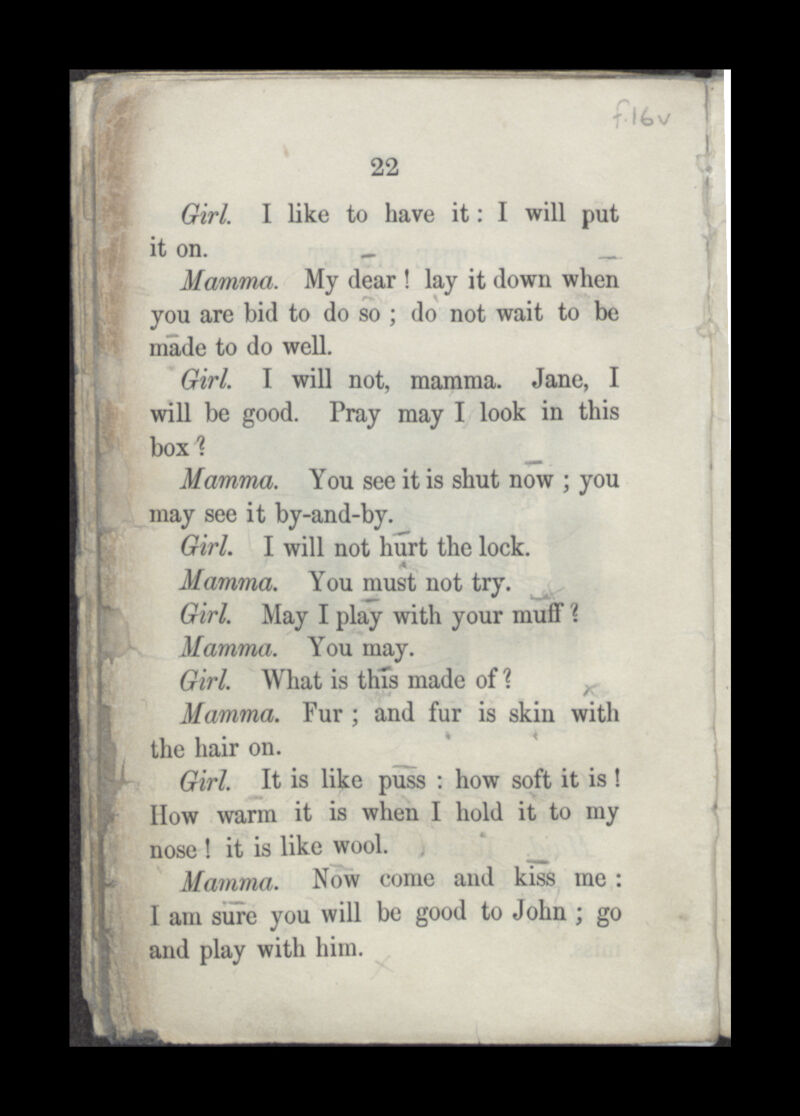 f.16v
22
Girl. I like to have it : I will put
it on.
Mamma. My dear ! lay it down when
you are bid to do so ; do not wait to be
made to do well.
Girl. I will not, mamma. Jane, I
will be good. Pray may I look in this
box ?
Mamma. You see it is shut now ; you
may see it by-and-by.
Girl. I will not hurt the lock.
Mamma. You must not try.
Girl. May I play with your muff ?
Mamma. You may.
Girl. What is this made of ?
Mamma. Fur ; and fur is skin with
the hair on.
Girl. It is like puss : how soft it is !
How warm it is when I hold it to my
nose ! it is like wool.
Mamma. Now come and kiss me :
I am sure you will be good to John ; go
and play with him.